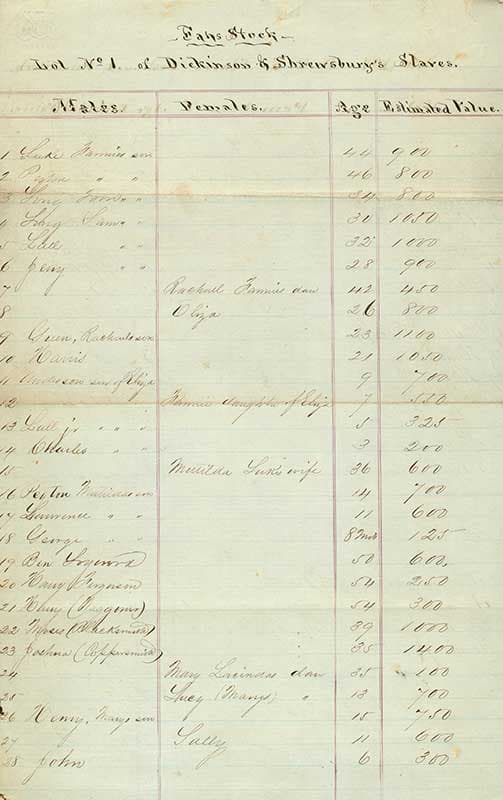 Lot No 1. of Dickinson & Shrewsbury's Slaves.
Males. Females. Age Estimated Value.
1 Luke Fannies son 44 900
2 Peyton " " 46 800
3 Long Tom " " 34 800
4 Long Sam " " 30 1050
5 " " 32 1000
6 Jerry " " 28 900
7 Rachall Fannies dau 42 450
8 Eliza 26 800
9 Green, Rachails son 23 1100
10 Harris 21 1050
11 Anderson son of Eliza 9 700
12 Fannie daughter of Eliza 7 550
13 jr " " 5 325
14 Charles " " 3 200
15 Matilda Luk's wife 36 600
16 Peyton Matildas son 14 700
17 Lawrence " " 11 600
18 George " " 8 Mos 125
19 Ben 50 600.
20 Harry Ferguson 54 250
21 Henry 54 300
22 Moses (Blacksmith) 39 1000
23 Joshua (Coppersmith) 35 1400
24 Mary Lucindas dau 35 100
25 Lucy (Marys) " 13 700
26 Henry, Marys son 15 750
27 Sally 11 600
28 John 6 300